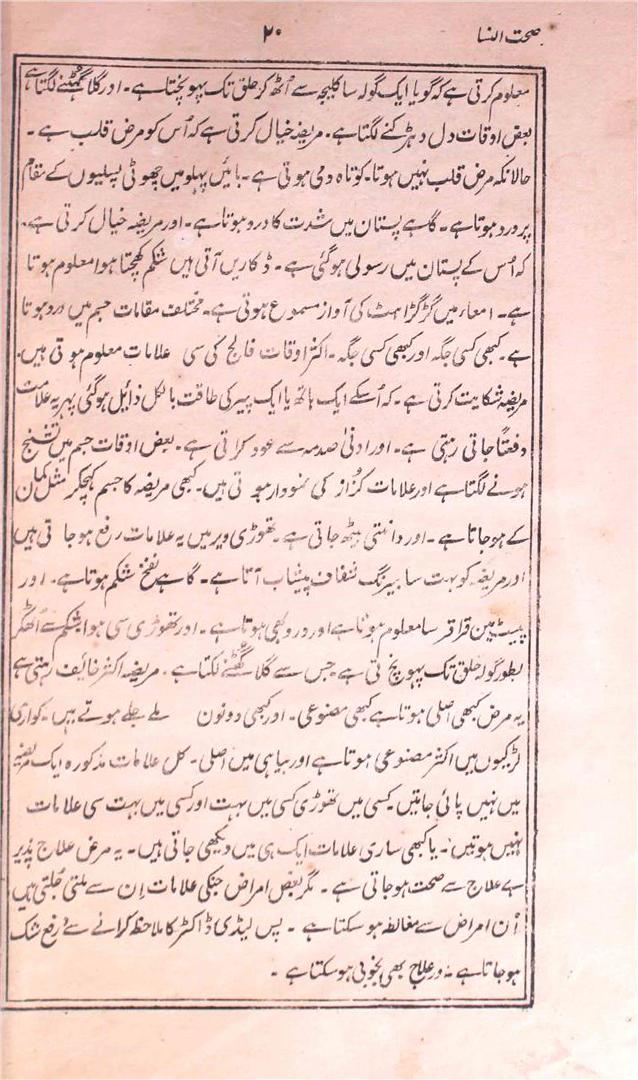 صحت النسا
۲۰
معلوم کرتی ہے کہ گویا ایک گولہ سا کلیجہ سے اُٹھ کر حلق تک پہوپختا ہے۔ اور گلا گھٹنے لگتا ہے
بعض اوقات دل دھڑکنے لگتا ہے۔ مریضہ خیال کرتی ہے کہ اُس کو مرض قلب ہے۔
حالانکہ مرض قلب نہیں ہوتا۔ کوتاہ دمی ہوتی ہے۔ بائیں پہلو میں چھوٹی پسلیوں کے مقام
پر درد ہوتا ہے۔ گاہے پستان میں شدت کا درد ہوتا ہے۔ اور مریضہ خیال کرتی ہے۔
کہ اُس کے پستان میں رسولی ہوگئی ہے۔ ڈکاریں آتی ہیں شکم کھچتا ہوا معلوم ہوتا
ہے۔ امعاء میں گڑگڑاہٹ کی آواز مسموع ہوتی ہے۔ مختلف مقامات جسم میں درد ہوتا
ہے۔ کبھی کسی جگہ اور کبھی کسی جگہ۔ اکثر اوقات فالج کی سی علامات معلوم ہوتی ہیں۔
مریضہ شکایت کرتی ہے۔ کہ اُسکے ایک ہاتھ یا ایک پیر کی طاقت بالکل زائیل ہوگئی پہر یہ علامت
دفعتاً جاتی رہتی ہے۔ اور ادنیٰ صدمہ سے عود کراتی ہے۔ بعض اوقات جسم میں تشنج
ہونے لگتا ہے اور علامات کزاز کی نمودار ہوتی ہیں۔ کبھی مریضہ کا جسم کھچکر مثل کمان
کے ہو جاتا ہے۔ اور دانتی بیٹھ جاتی ہے۔ تھوڑی دیر میں یہ علامات رفع ہو جاتی ہیں
اور مریضہ کو بہت سا بیرنگ شفاف پیشاب آتا ہے۔ گاہے نفخ شکم ہوتا ہے۔ اور
پیٹ مین قراقر سا معلوم ہوتا ہے اور درد بھی ہوتا ہے۔ اور تھوڑی سی ہوا شکم سے اٹھکر
بطور گولہ حلق تک پہوپختی ہے جس سے گلا گھٹنے لگتا ہے۔ مریضہ اکثر خائیف رہتی ہے
یہ مرض کبھی اصلی ہوتا ہے کبھی مصنوعی۔ اور کبھی دونون ملے جلے ہوتے ہیں۔ کواری
لڑکیوں میں اکثر مصنوعی ہوتا ہے اور بیاہی میں اصلی۔ کل علامات مذکورہ ایک مریضہ
میں نہیں پائی جاتیں۔ کسی میں تھوڑی کسی میں بہت اور کسی میں بہت سی علامات
نہیں ہوتیں۔ یا کبھی ساری علامات ایک ہی میں دیکھی جاتی ہیں۔ یہ مرض علاج پذیر
ہے علاج سے صحت ہو جاتی ہے۔ مگر بعض امراض جنکی علامات اِن سے ملتی جُلتی ہیں
اُن امراض سے مغالطہ ہو سکتا ہے۔ پس لیڈی ڈاکٹر کا ملاحظہ کرانے سے رفع شک
ہو جاتا ہے۔ اور علاج بھی بخوبی ہو سکتا ہے۔